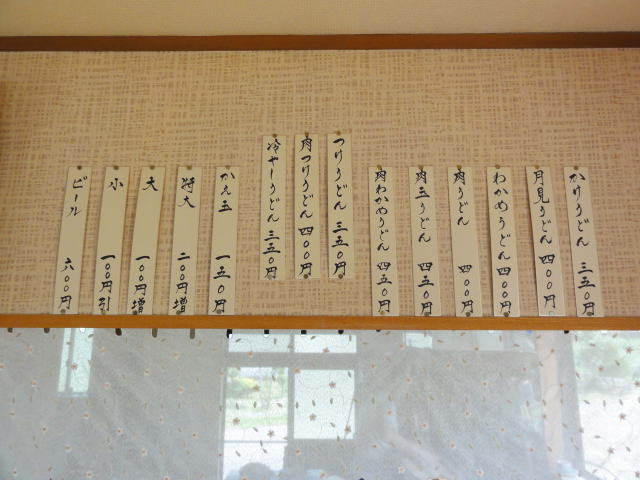 かけうどん 三五0円
月見うどん 四00円
わかめうどん 四00円
肉うどん 四00円
肉玉うどん 四五0円
肉わかめうどん 四五0円
つけうどん 三五0円
肉つけうどん 四00円
冷やしうどん 三五0円
かえ玉 一五0円
特大 二00円増
大 一00円増
小 一00円引
ビール 六00円